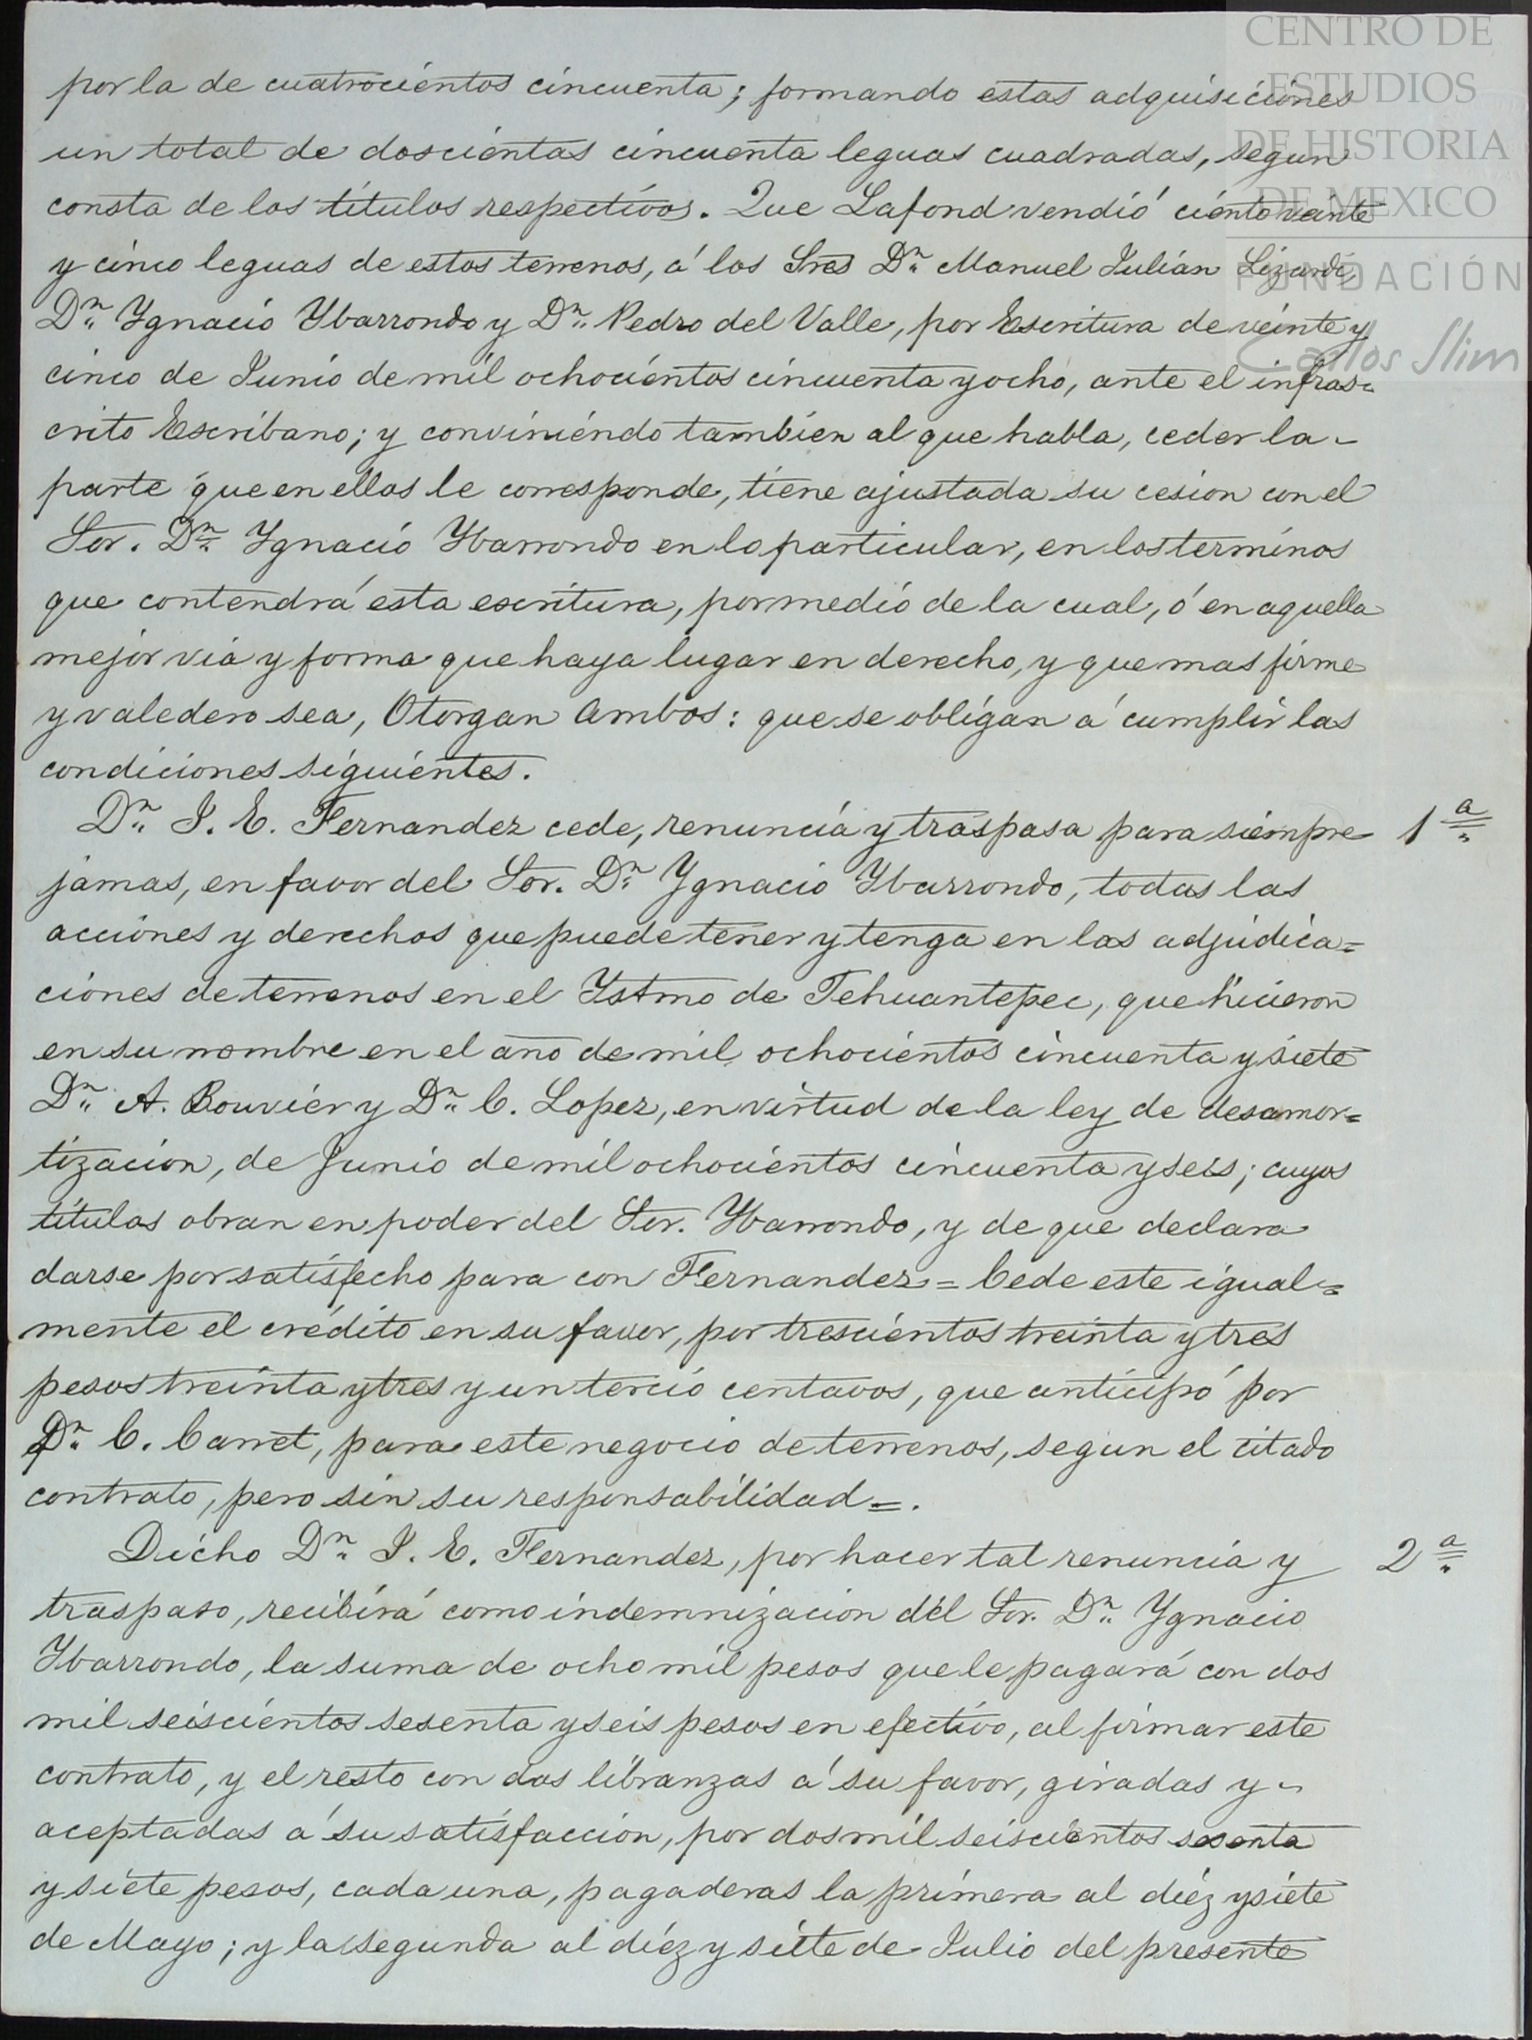 CENTRO DE
ESTUDIOS
DE HISTORIA
DE MEXICO
FUNDACIÓN
Carlos Slim
por la de cuatrocientos cincuenta; formando estas adquisiciones
un total de doscientas cincuenta leguas cuadradas, segun
consta de los títulos respectivos. Que Lafond vendió ciento veinte
y cinco leguas de estos terrenos, á los Sres Dn. Manuel Julian Lizardi,
Dn. Ygnacio Ybarrondo y Dn. Pedro del Valle, por Escritura de veinte y
cinco de Junio de mil ochocientos cincuenta y ocho, ante el infras-
crito Escribano; y conviniendo tambien al que habla, ceder la-
parte que en ellos le corresponde, tiene ajustada su cesion con el
Sor. Dn. Ygnacio Ybarrondo en lo particular, en los terminos
que contendrá esta escritura, por medio de la cual, ó en aquella
mejor via y forma que haya lugar en derecho, y que mas firme
y valedero sea, Otorgan Ambos: que se obligan á cumplir las
condiciones siguientes.
Dn. J. E. Fernandez cede, renuncia y traspasa para siempre 1a.
jamas, en favor del Sor. Dn. Ygnacio Ybarrondo, todas las
acciones y derechos que puede tener y tenga en las adjudica=
ciones de terrenos en el Ystmo de Tehuantepec, que hicieron
en su nombre en el año de mil ochocientos cincuenta y siete
Dn. A. Bouvier y Dn. C. Lopez, en virtud de la ley de desamor=
tizacion, de Junio de mil ochocientos cincuenta y seis; cuyos
títulos obran en poder del Sor. Ybarrondo, y de que declara
darse por satisfecho para con Fernandez = Cede este igual=
mente el crédito en su favor, por trescientos treinta y tres
pesos treinta y tres y un tercio centavos, que anticipó por
Dn. C. Carret, para este negocio de terrenos, segun el citado
contrato, pero sin su responsabilidad=.
Dicho Dn. J. E. Fernandez, por hacer tal renuncia y 2a.
traspaso, recibirá como indemnizacion del Sor. Dn. Ygnacio
Ybarrondo, la suma de ocho mil pesos que le pagará con dos
mil seiscientos sesenta y seis pesos en efectivo, al firmar este
contrato, y el resto con dos libranzas á su favor, giradas y-
aceptadas á su satisfaccion, por dos mil seiscientos sesenta
y siete pesos, cada una, pagaderas la primera al diez y siete
de Mayo; y la segunda al diéz y siete de Julio del presente